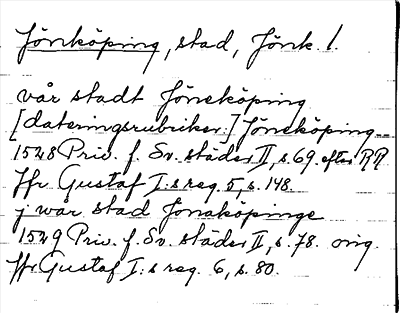 Jönköping, stad, Jönk. l.
vår stadt Jöneköping
[dateringsrubriker:] Jöneköping
1528 Priv. f. Sv. städer II, s. 69. efter RR
Jfr Gustaf I:s reg. 5, s. 148.
j wår stad Jonaköpinge
1529 Priv. f. Sv. städer II, s. 78. orig.
Jfr Gustaf I:s reg. 6, s. 80.